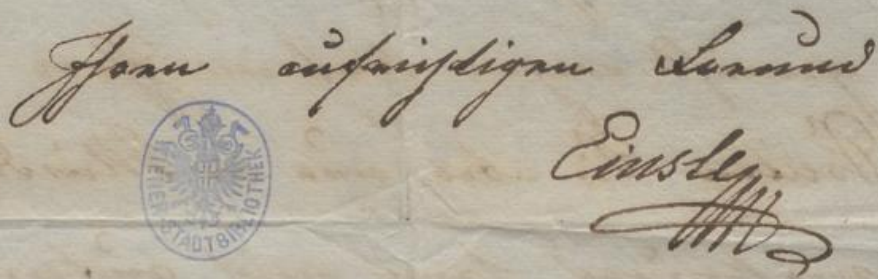 Ihren aufrichtigen Freund
Einsle
WIENER STADTBIBLIOTHEK